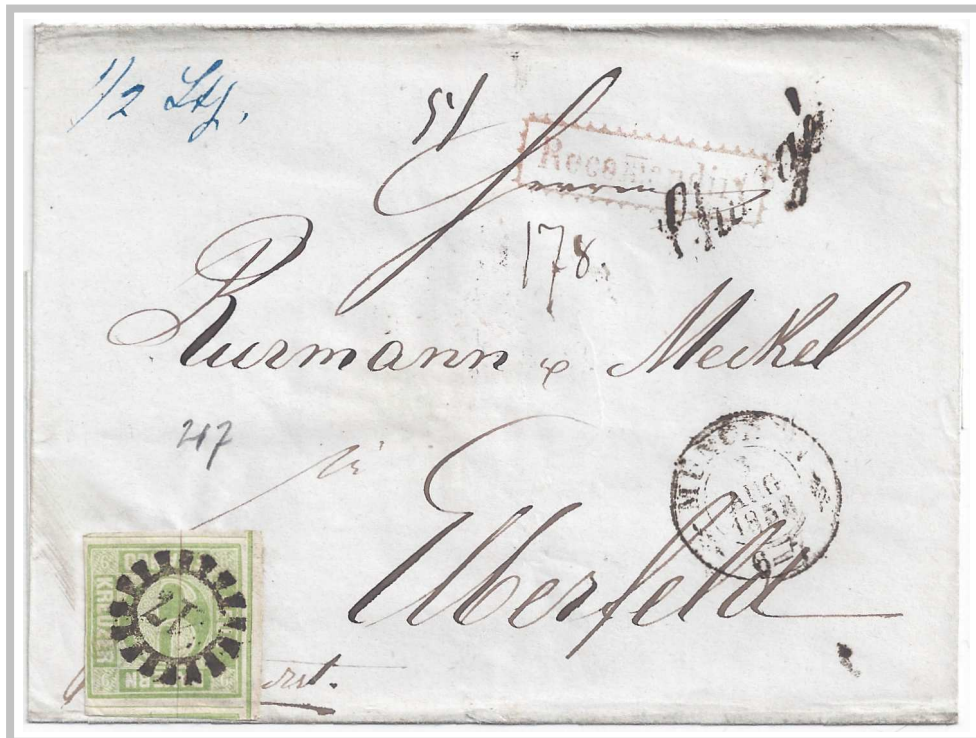 1/2 Lth.
51
Herrn
Recommandirt
Chargé
178.
Rurmann & Meckel
217
in
Elberfeld
MÜNCHEN
AUG
1858
KREUZER
BAYERN
217